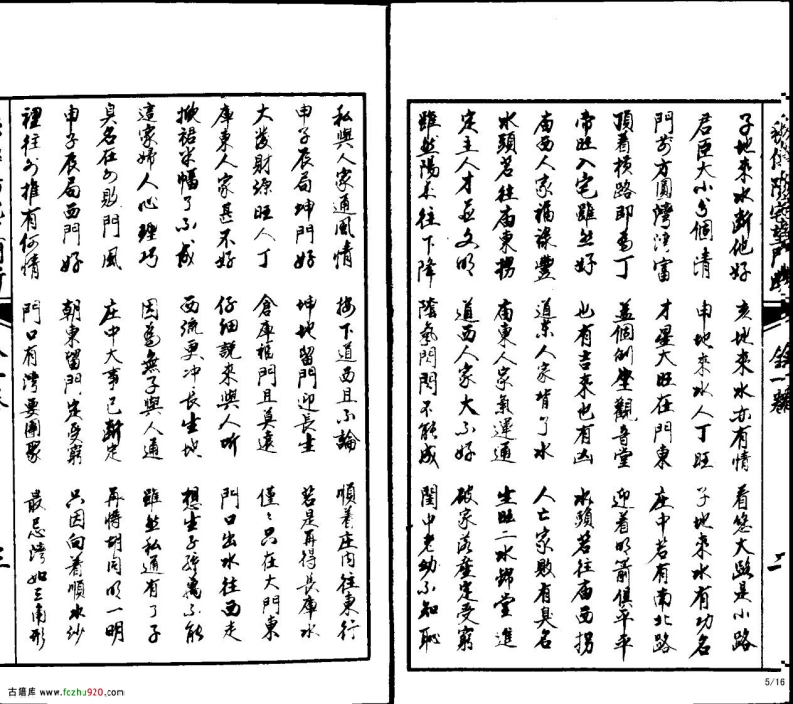 子地來水斷他好 亥地來水亦有情 看您大路是小路
君臣大小分個清 申地來水人丁旺 子地來水有功名
門前方圓灣洼富 才星大旺在門東 庄中若有南北路
頂着橫路即爲丁 蓋個倒座觀音堂 迎着明箭俱平平
帝旺入宅雖然好 也有吉來也有凶 水頭若往庙西拐
庙西人家福祿豐 道東人家背了水 人亡家敗有臭名
水頭若往庙東拐 庙東人家氣運通 生旺二水歸堂進
定主人才並文明 道西人家大不好 破家落產定受窮
雖然陽氣往下降 陰氣閉門不能成 閨中老幼不知恥
私與人家通風情 按下道西且不論 順着庄内往東行
申子辰局坤門好 坤地留門迎長生 若是再得長庫水
大發財源旺人丁 倉庫福門且莫遠 僅々只在大門東
庫東人家甚不好 仔細說來與人听 門口出水往西走
掀裙半幅了不成 西流更冲長生地 想生子孫萬不能
這家婦人心理巧 因爲無子與人通 雖然私通有了子
臭名在外敗門風 庄中大事已斷定 再將胡同明一明
申子辰局西門好 朝東留門定受窮 只因向着順水紗
裡往外推有何情 門口有灣要團聚 最忌灣如三角形
古籍庫 www.fczhu920.com
5/16